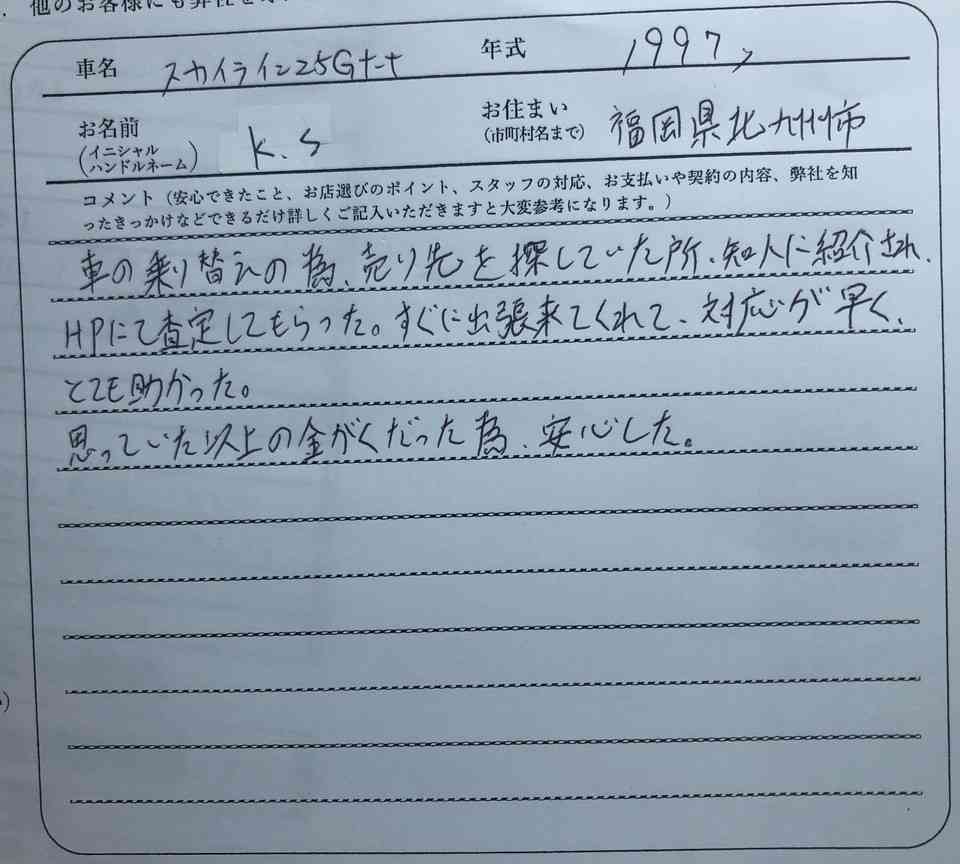 他のお客様にも弊社を
車名 スカイライン25Gtーt 年式 1997
お名前 (イニシャル ハンドルネーム) K.S お住まい (市町村名まで) 福岡県北九州市
コメント（安心できたこと、お店選びのポイント、スタッフの対応、お支払いや契約の内容、弊社を知
ったきっかけなどできるだけ詳しくご記入いただきますと大変参考になります。）
車の乗り替えの為、売り先を探していた所、知人に紹介され、
HPにて査定してもらった。すぐに出張来てくれて、対応が早く、
とても助かった。
思っていた以上の金がくだった為、安心した。